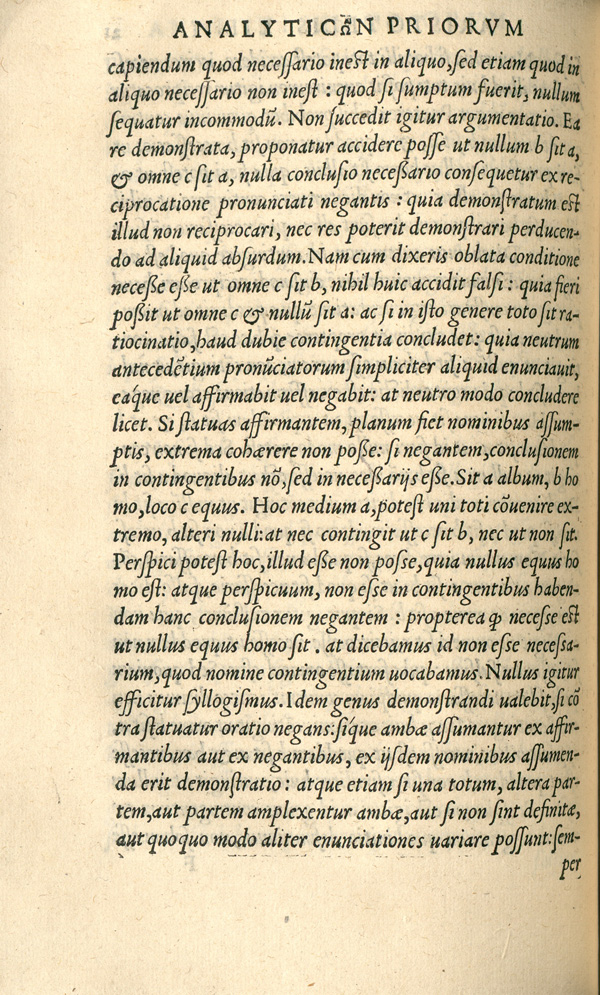 ANALYTICωN PRIORVM
capiendum quod necessario inest in aliquo, sed etiam quod in
aliquo necessario non inest : quod si sumptum fuerit, nullum
sequatur incommodū. Non succedit igitur argumentatio. Ea
re demonstrata, proponatur accidere posse ut nullum b sit a,
& omne c sit a, nulla conclusio necessario consequetur ex re-
ciprocatione pronunciati negantis : quia demonstratum est
illud non reciprocari, nec res poterit demonstrari perducen-
do ad aliquid absurdum. Nam cum dixeris oblata conditione
necesse esse ut omne c sit b, nihil huic accidit falsi : quia fieri
possit ut omne c & nullū sit a: ac si in isto genere toto sit ra-
tiocinatio, haud dubie contingentia concludet: quia neutrum
antecedētium pronūciatorum simpliciter aliquid enunciauit,
eáque uel affirmabit uel negabit: at neutro modo concludere
licet. Si statuas affirmantem, planum fiet nominibus assum-
ptis, extrema cohærere non posse: si negantem, conclusionem
in contingentibus nō, sed in necessarijs esse. Sit a album, b ho
mo, loco c equus. Hoc medium a, potest uni toti cōuenire ex-
tremo, alteri nulli: at nec contingit ut c sit b, nec ut non sit.
Perspici potest hoc, illud esse non posse, quia nullus equus ho
mo est: atque perspicuum, non esse in contingentibus haben-
dam hanc conclusionem negantem : propterea ꝙ necesse est
ut nullus equus homo sit . at dicebamus id non esse necessa-
rium, quod nomine contingentium uocabamus. Nullus igitur
efficitur syllogismus. Idem genus demonstrandi ualebit, si cō
tra statuatur oratio negans: síque ambæ assumantur ex affir-
mantibus aut ex negantibus, ex ijsdem nominibus assumen-
da erit demonstratio : atque etiam si una totum, altera par-
tem, aut partem amplexentur ambæ, aut si non sint definitæ,
aut quoquo modo aliter enunciationes uariare possunt: sem-
per